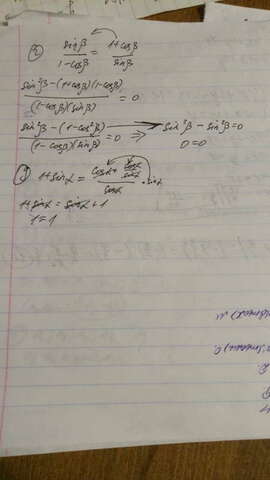 sinβ/(1-cosβ) = (1+cosβ)/sinβ
(sin²β-(1+cosβ)(1-cosβ))/((1-cosβ)(sinβ)) = 0
(sin²β-(1-cos²β))/((1-cosβ)(sinβ)) = 0 ⇒ sin²β - sin²β = 0
0 = 0
1+sinα = (cosα + cosα/sinα)/cosα · sinα
1+sinα = sinα + 1
1 = 1